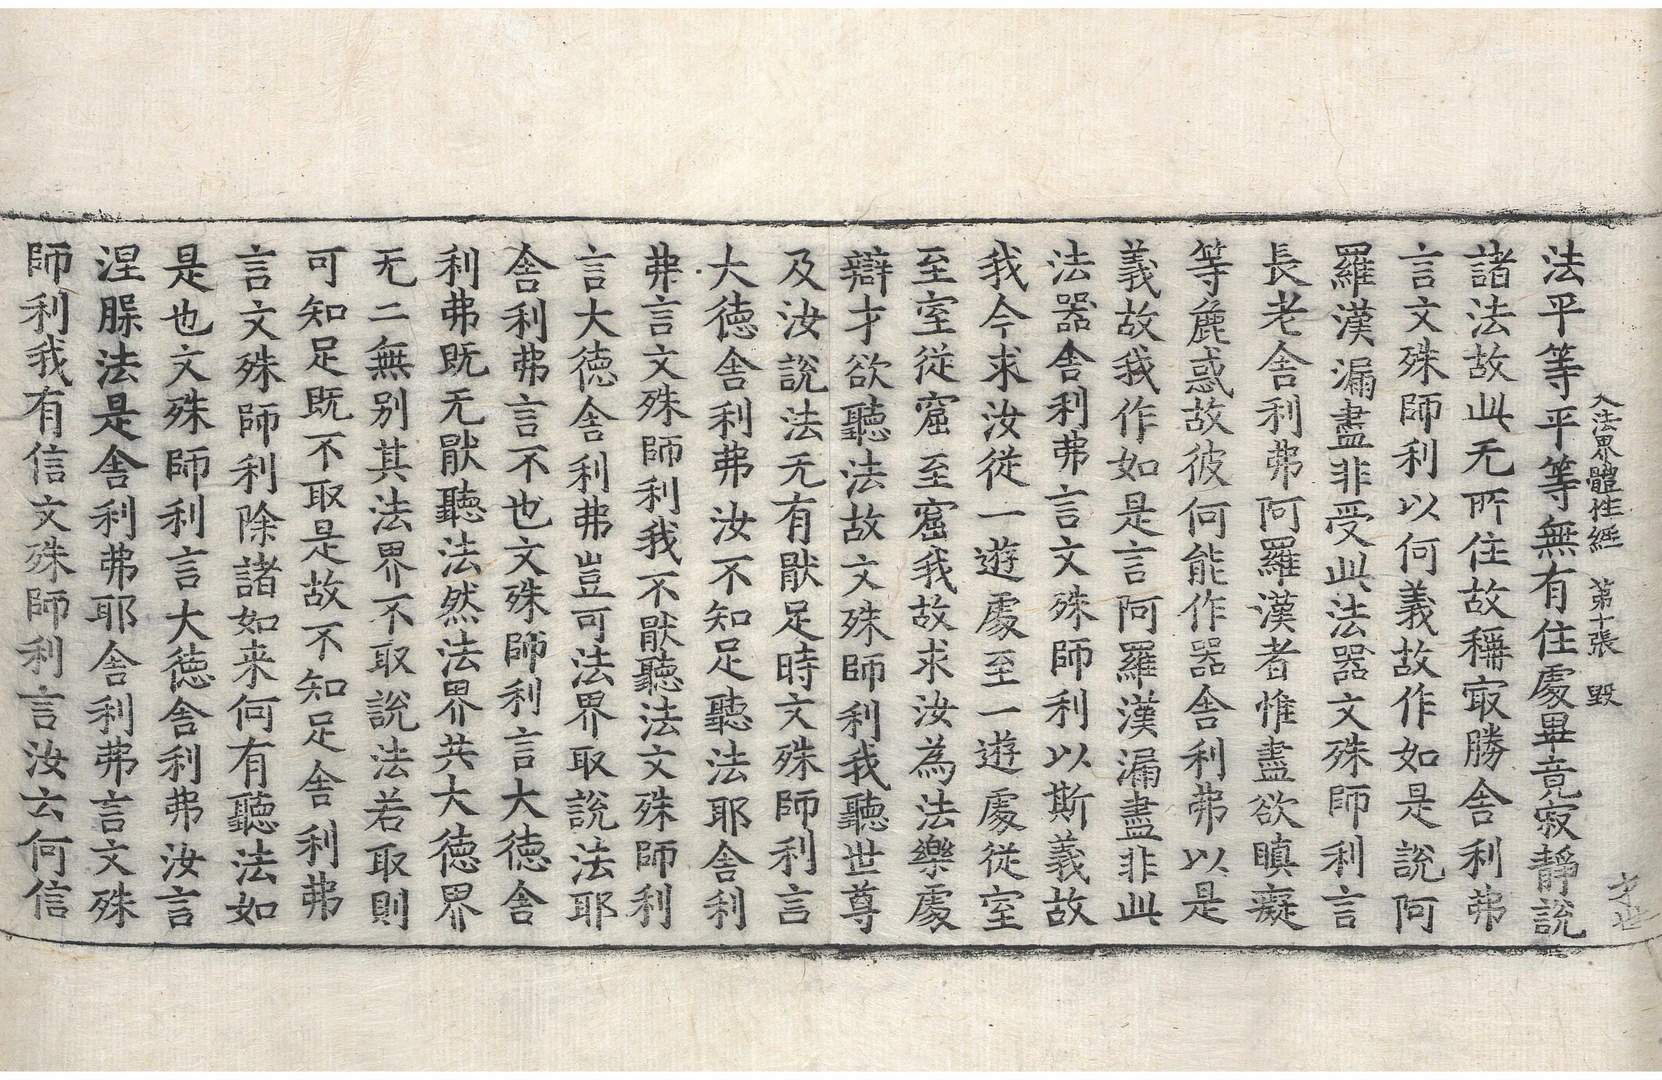 入法界體性經　第十張　毀
法平等平等無有住處畢竟寂靜說
諸法故此无所住故稱㝡勝舍利弗
言文殊師利以何義故作如是說阿
羅漢漏盡非受此法器文殊師利言
長老舍利弗阿羅漢者惟盡欲瞋癡
等麁惑故彼何能作器舍利弗以是
義故我作如是言阿羅漢漏盡非此
法器舍利弗言文殊師利以斯義故
我今求汝從一遊處至一遊處從室
至室從窟至窟我故求汝為法樂處
辯才欲聽法故文殊師利我聽世尊
及汝說法无有猒足時文殊師利言
大德舍利弗汝不知足聽法耶舍利
弗言文殊師利我不猒聽法文殊師利
言大德舍利弗豈可法界取說法耶
舍利弗言不也文殊師利言大德舍
利弗既无猒聽法然法界共大德界
无二無別其法界不取說法若取則
可知足既不取是故不知足舍利弗
言文殊師利除諸如来何有聽法如
是也文殊師利言大德舍利弗汝言
涅槃法是舍利弗耶舍利弗言文殊
師利我有信文殊師利言汝云何信